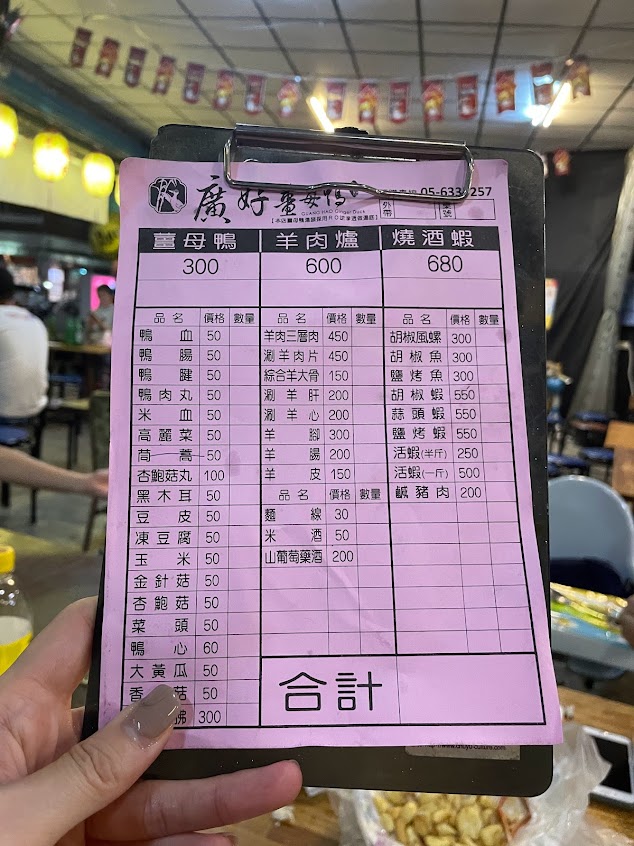 廣好薑母鴨
05-633
257
GUANG HAO Ginger Duck
外帶
桌號
薑母鴨 羊肉爐 燒酒蝦
300 600 680
品名 價格 數量
鴨血 50
鴨腸 50
鴨腱 50
鴨肉丸 50
米血 50
高麗菜 50
茼蒿 50
杏鮑菇丸 100
黑木耳 50
豆皮 50
凍豆腐 50
玉米 50
金針菇 50
杏鮑菇 50
菜頭 50
鴨心 60
大黃瓜 50
香菇 50
300
品名 價格 數量
羊肉三層肉 450
涮羊肉片 450
綜合羊大骨 150
涮羊肝 200
涮羊心 200
羊腳 300
羊腸 200
羊皮 150
品名 價格 數量
麵線 30
米酒 50
山葡萄藥酒 200
品名 價格 數量
胡椒風螺 300
胡椒魚 300
鹽烤魚 300
胡椒蝦 550
蒜頭蝦 550
鹽烤蝦 550
活蝦(半斤) 250
活蝦(一斤) 500
鹹豬肉 200
合計